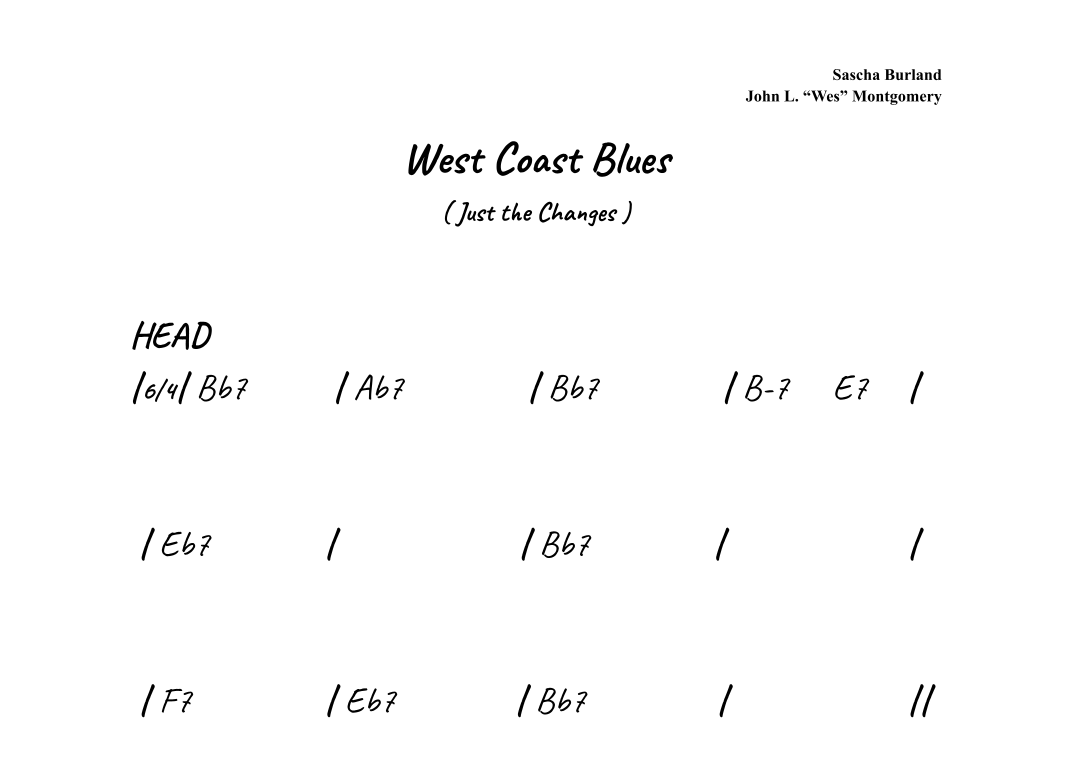 Sascha Burland
John L. “Wes” Montgomery
West Coast Blues
( Just the Changes )
HEAD
|6/4| Bb7 | Ab7 | Bb7 | B-7 E7 |
| Eb7 | | Bb7 | |
| F7 | Eb7 | Bb7 | ||